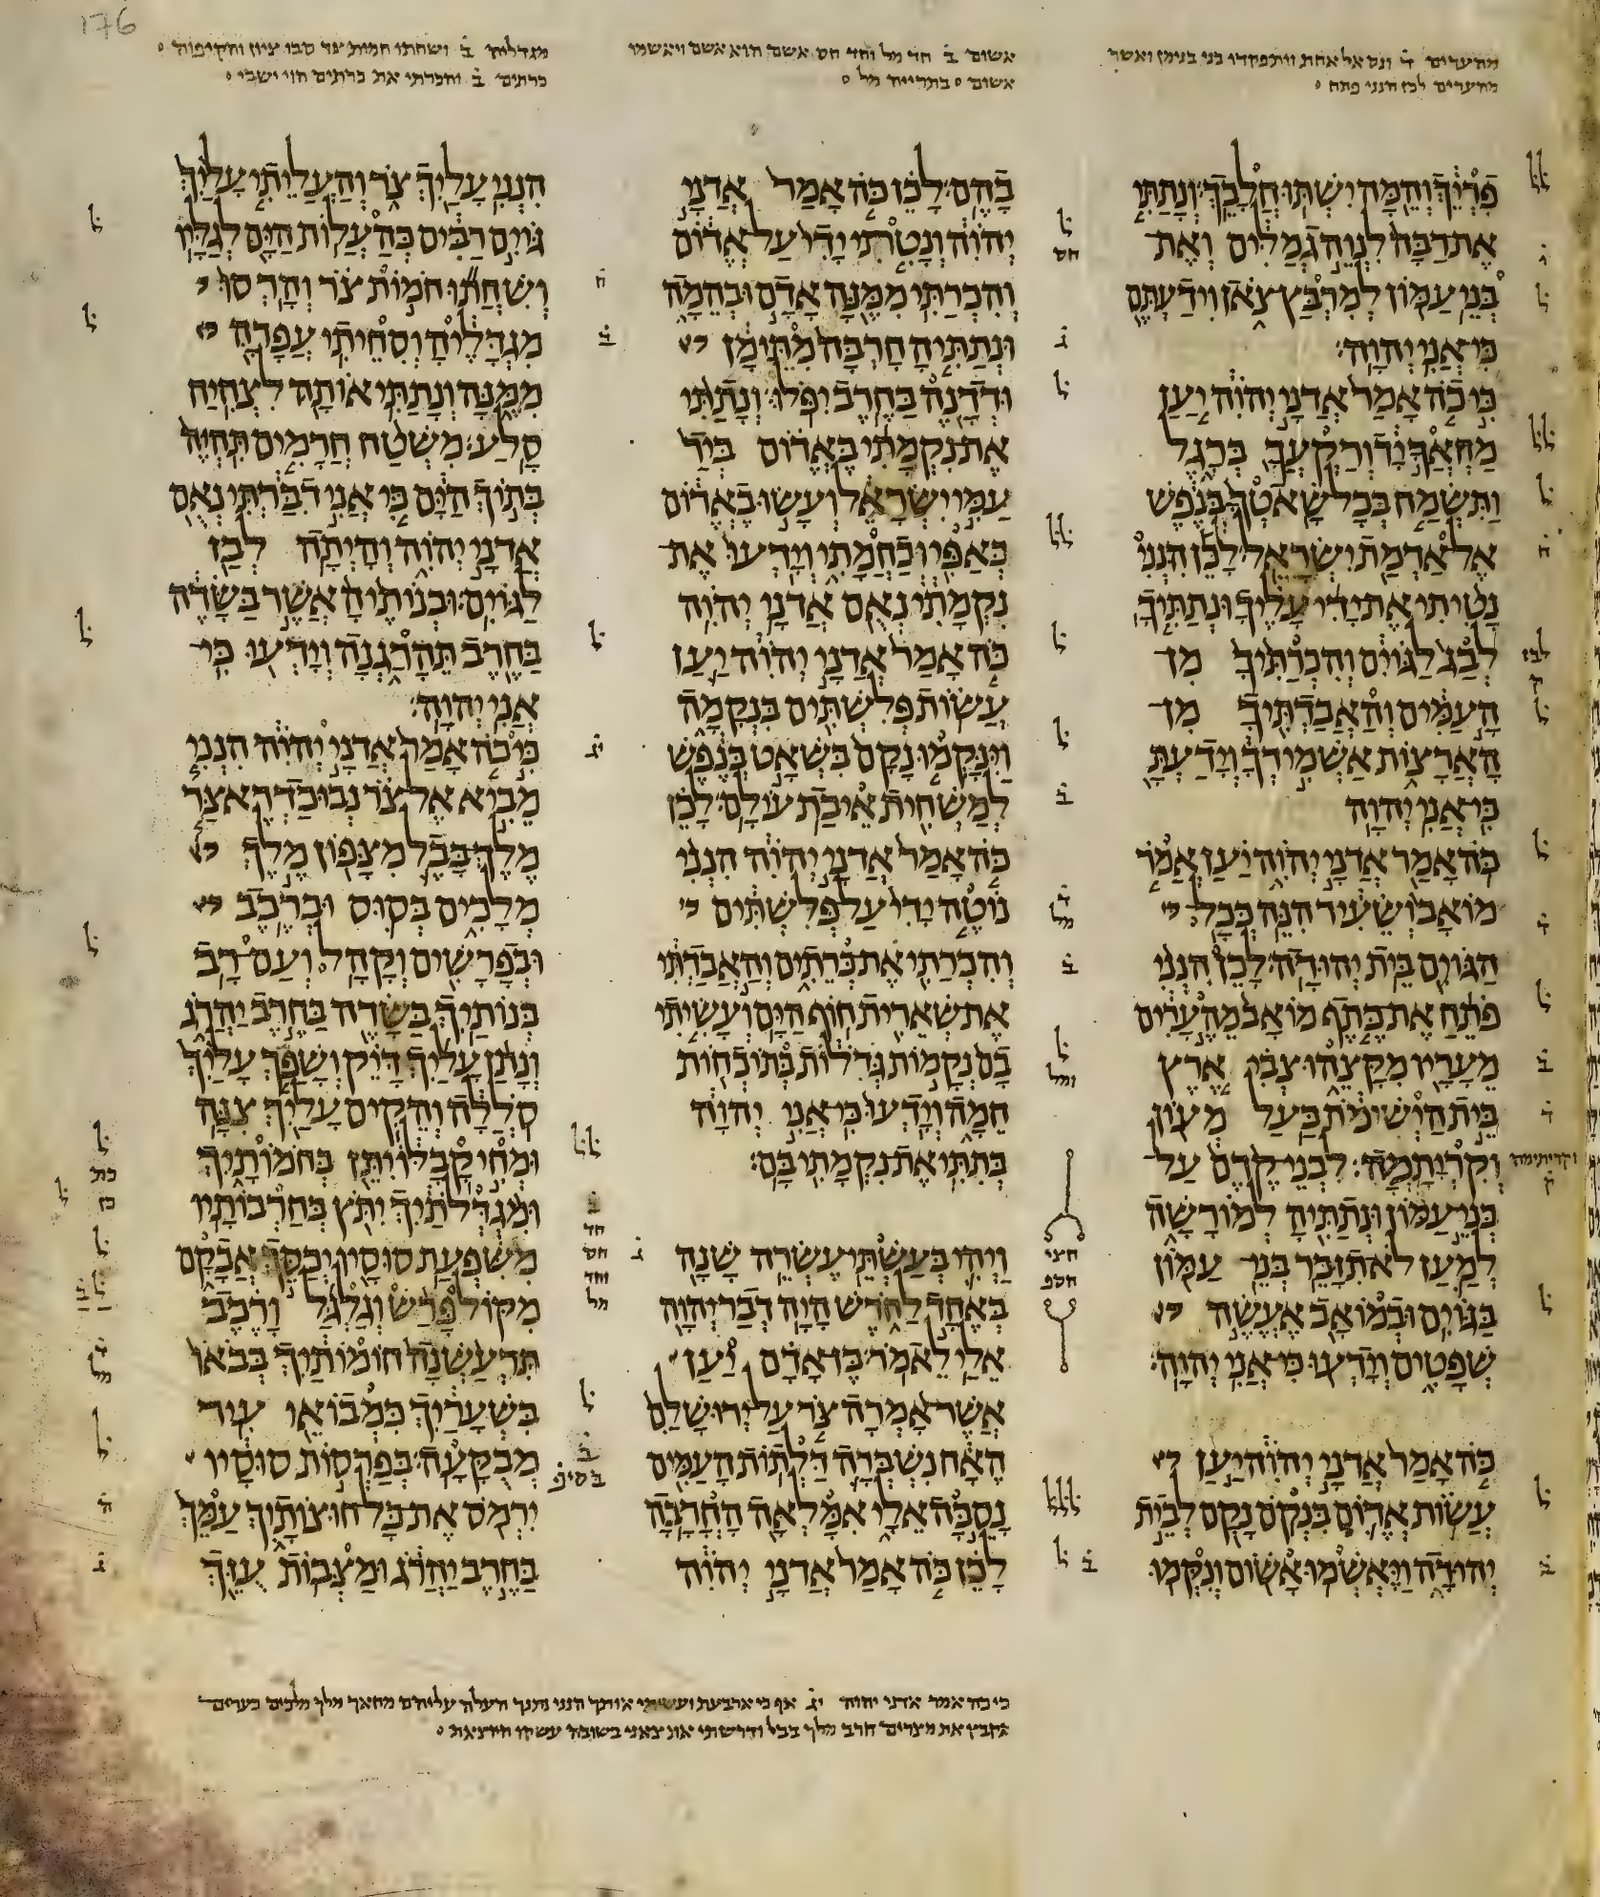 176
מהערים ד ונס אל אחת ויתפקדו בני בנימן ואשר
מהערים לכן הנני פתח
פריך והמה ישתו חלבך ונתתי
את רבה לנוה גמלים ואת
בני עמון למרבץ צאן וידעתם
כי אני יהוה
כי כה אמר אדני יהוה יען
מחאך יד ורקעך ברגל
ותשמח בכל שאטך בנפש
אל אדמת ישראל לכן הנני
נטיתי את ידי עליך ונתתיך
לבג לגוים והכרתיך מן
העמים והאבדתיך מן
הארצות אשמידך וידעת
כי אני יהוה
כה אמר אדני יהוה יען אמר
מואב ושעיר הנה ככל
הגוים בית יהודה לכן הנני
פתח את כתף מואב מהערים
מעריו מקצהו צבי ארץ
בית הישימת בעל מעון
וקריתמה לבני קדם על
בני עמון ונתתיה למורשה
למען לא תזכר בני עמון
בגוים ובמואב אעשה
שפטים וידעו כי אני יהוה
כה אמר אדני יהוה יען
עשות אדום בנקם נקם לבית
יהודה ויאשמו אשום ונקמו
לבז
ק
חצי
הספ
אשום ב חד מל וחד חס אשם הוא אשם ויאשמו
אשום בתרייה מל
בהם לכן כה אמר אדני
יהוה ונטתי ידי על אדום
והכרתי ממנה אדם ובהמה
ונתתיה חרבה מתימן
ודדנה בחרב יפלו ונתתי
את נקמתי באדום ביד
עמי ישראל ועשו באדום
כאפי וכחמתי וידעו את
נקמתי נאם אדני יהוה
כה אמר אדני יהוה יען
עשות פלשתים בנקמה
וינקמו נקם בשאט בנפש
למשחית איבת עולם לכן
כה אמר אדני יהוה הנני
נוטה ידי על פלשתים
והכרתי את כרתים והאבדתי
את שארית חוף הים ועשיתי
בם נקמות גדלות בתוכחות
חמה וידעו כי אני יהוה
בתתי את נקמתי בם
ויהי בעשתי עשרה שנה
באחד לחדש היה דבר יהוה
אלי לאמר בן אדם יען
אשר אמרה צר על ירושלם
האח נשברה דלתות העמים
נסבה אלי אמלאה החרבה
לכן כה אמר אדני יהוה
מגדליה ב ושחתו חמות צר סבו ציון והקיפוה
כרתים ב והכרתי את כרתים הוי ישבי
הנני עליך צר והעליתי עליך
גוים רבים כהעלות הים לגליו
ושחתו חמות צר והרסו
מגדליה וסחיתי עפרה
ממנה ונתתי אותה לצחיח
סלע משטח חרמים תהיה
בתוך הים כי אני דברתי נאם
אדני יהוה והיתה לבז
לגוים ובנותיה אשר בשדה
בחרב תהרגנה וידעו כי
אני יהוה
כי כה אמר אדני יהוה הנני
מביא אל צר נבוכדראצר
מלך בבל מצפון מלך
מלכים בסוס וברכב
ובפרשים וקהל ועם רב
בנותיך בשדה בחרב יהרג
ונתן עליך דיק ושפך עליך
סללה והקים עליך צנה
ומחי קבלו יתן בחמותיך
ומגדלתיך יתץ בחרבותיו
משפעת סוסיו יכסך אבקם
מקול פרש וגלגל ורכב
תרעשנה חומותיך בבאו
בשעריך כמבואי עיר
מבקעה בפרסות סוסיו
ירמס את כל חוצותיך עמך
בחרב יהרג ומצבות עזך
כי כה אמר אדני יהוה יג אף כי ארבעת ועשיתי אותך הנני נותנך העלה עליהם מחאך מלך מלכים כערים